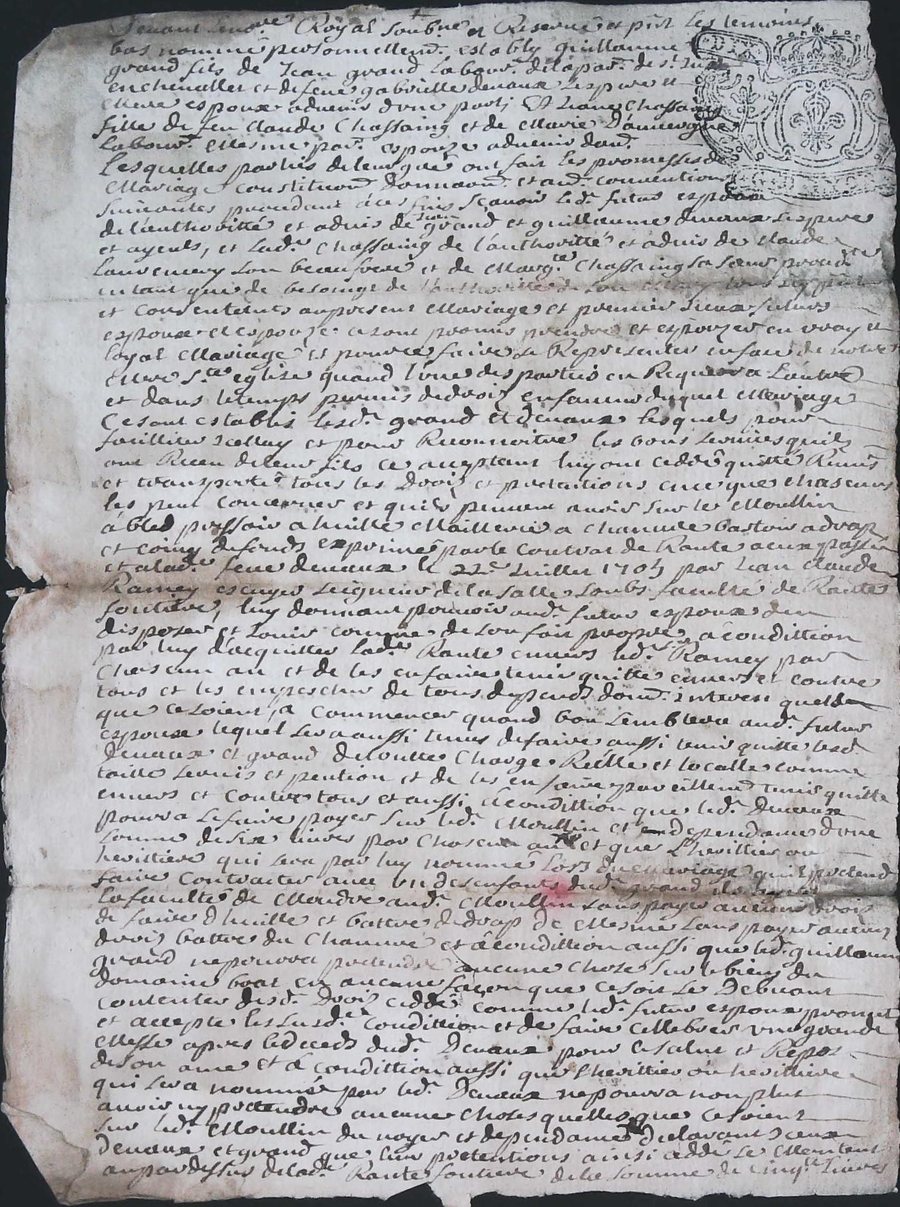 Royal soubné et Reservé et pñt les temoins
bas nommé personnellemt. estably guillaume
grand fils de Jean grand labour. de la par. de st.
en chevallet et de feue gabrielle devaux ses pere et
mere espoux advenir d'une part; Et Chassaing
fille de feu Claude Chassaing et de Marie Dauvergne
labour. mesme par. espouze advenir daut.
Lesquelles parties de leur gré ont fait les promesses de
Mariage Constitution et aut. conventions
suivantes procedant à ces fins sçavoir led. futur espoux
de l'authoritté et advis de Jean grand et guillaume devaux ses pere
et ayeul, et lad. Chassaing de l'authoritté et advis de Claude
son beaufrere et de Margte. Chassaing sa sœur
en tant que de besoing de l'authoritté de son
et consentents au present Mariage et premier futurs
espoux et espouze ce sont promis prendre et espouzer en vray et
loyal Mariage et pour ce faire se Representer en face de notre
Mere ste. eglize quand l'une des parties en Requerra l'autre
et dans le temps permis de droit en faveur duquel Mariage
Ce sont establis lesd. grand et devaux lesquels pour
et pour Reconnoitre les bons services quils
ont Receu de leur fils ce acceptant luy ont ceddé quitté Remis
et transporté tous les droits et pretentions en ce que chascuns
les peut concerner et qu'ils peuvent avoir sur le Moullin
à bled pressoir a huille Maillerie a chanvre battoir a drap
et coing de fonds exprimé par le contrat de Rante a eux passé
et a lad. feue devaux le 22e. Juillet 1705 par Jean Claude
Ramey escuyer seigneur de la salle soubs faculté de Rante
fonciere, luy donnant pouvoir aud. futur espoux d'en
disposer et Jouir comme de son fait propre, à condittion
par luy d'acquitter lad. Rante envers led. sr. Ramey par
chascun an et de les en faire tenir quitte envers et contre
tous et les empescher de tous despends dom. interest quelle
que ce soient, à commencer quand bon semblera aud. futur
espoux lequel sera aussi tenus de faire aussi tenir quitte lesd.
devaux et grand de toutte charge Reelle et localle comme
taille servis et pention et de les en faire pareillemt. tenir quitte
envers et contre tous et aussi à condittion que led. Devaux
pourra se faire payer sur led. Moullin et dependance d'une
somme de six livres par chascun an et que l'herittier ou
herittiere qui sera par luy nommé lors du mariage qu'il pretend
faire contracter avec un des enfants dud. grand
la faculté de Moudre aud. Moullin sans payer aucuns droits
de faire d'huille et battre de drap de mesme sans payer aucuns
droits battre du chanvre et à condittion aussi que led. guillaume
grand ne pourra pretendre aucune chose sur le bien du
domaine en aucune façon que ce soit se debvant
contenter desd. droits ceddé comme led. futur espoux promet
et accepte les susd. condittion et de faire cellebrer une grande
Messe apres le deceds dud. Devaux pour le salut et Repos
de son ame et à condittion aussi que l'herittier ou herittiere
qui sera nommée par led. Devaux ne pourra non plus
avoir ny pretendre aucune choses quelles que ce soient
sur led. Moullin du noyer et dependance declarant
devaux et grand que leur pretentions ainsi ceddé se Montent
au par dessus de lad. Rante fonciere de la somme de livres